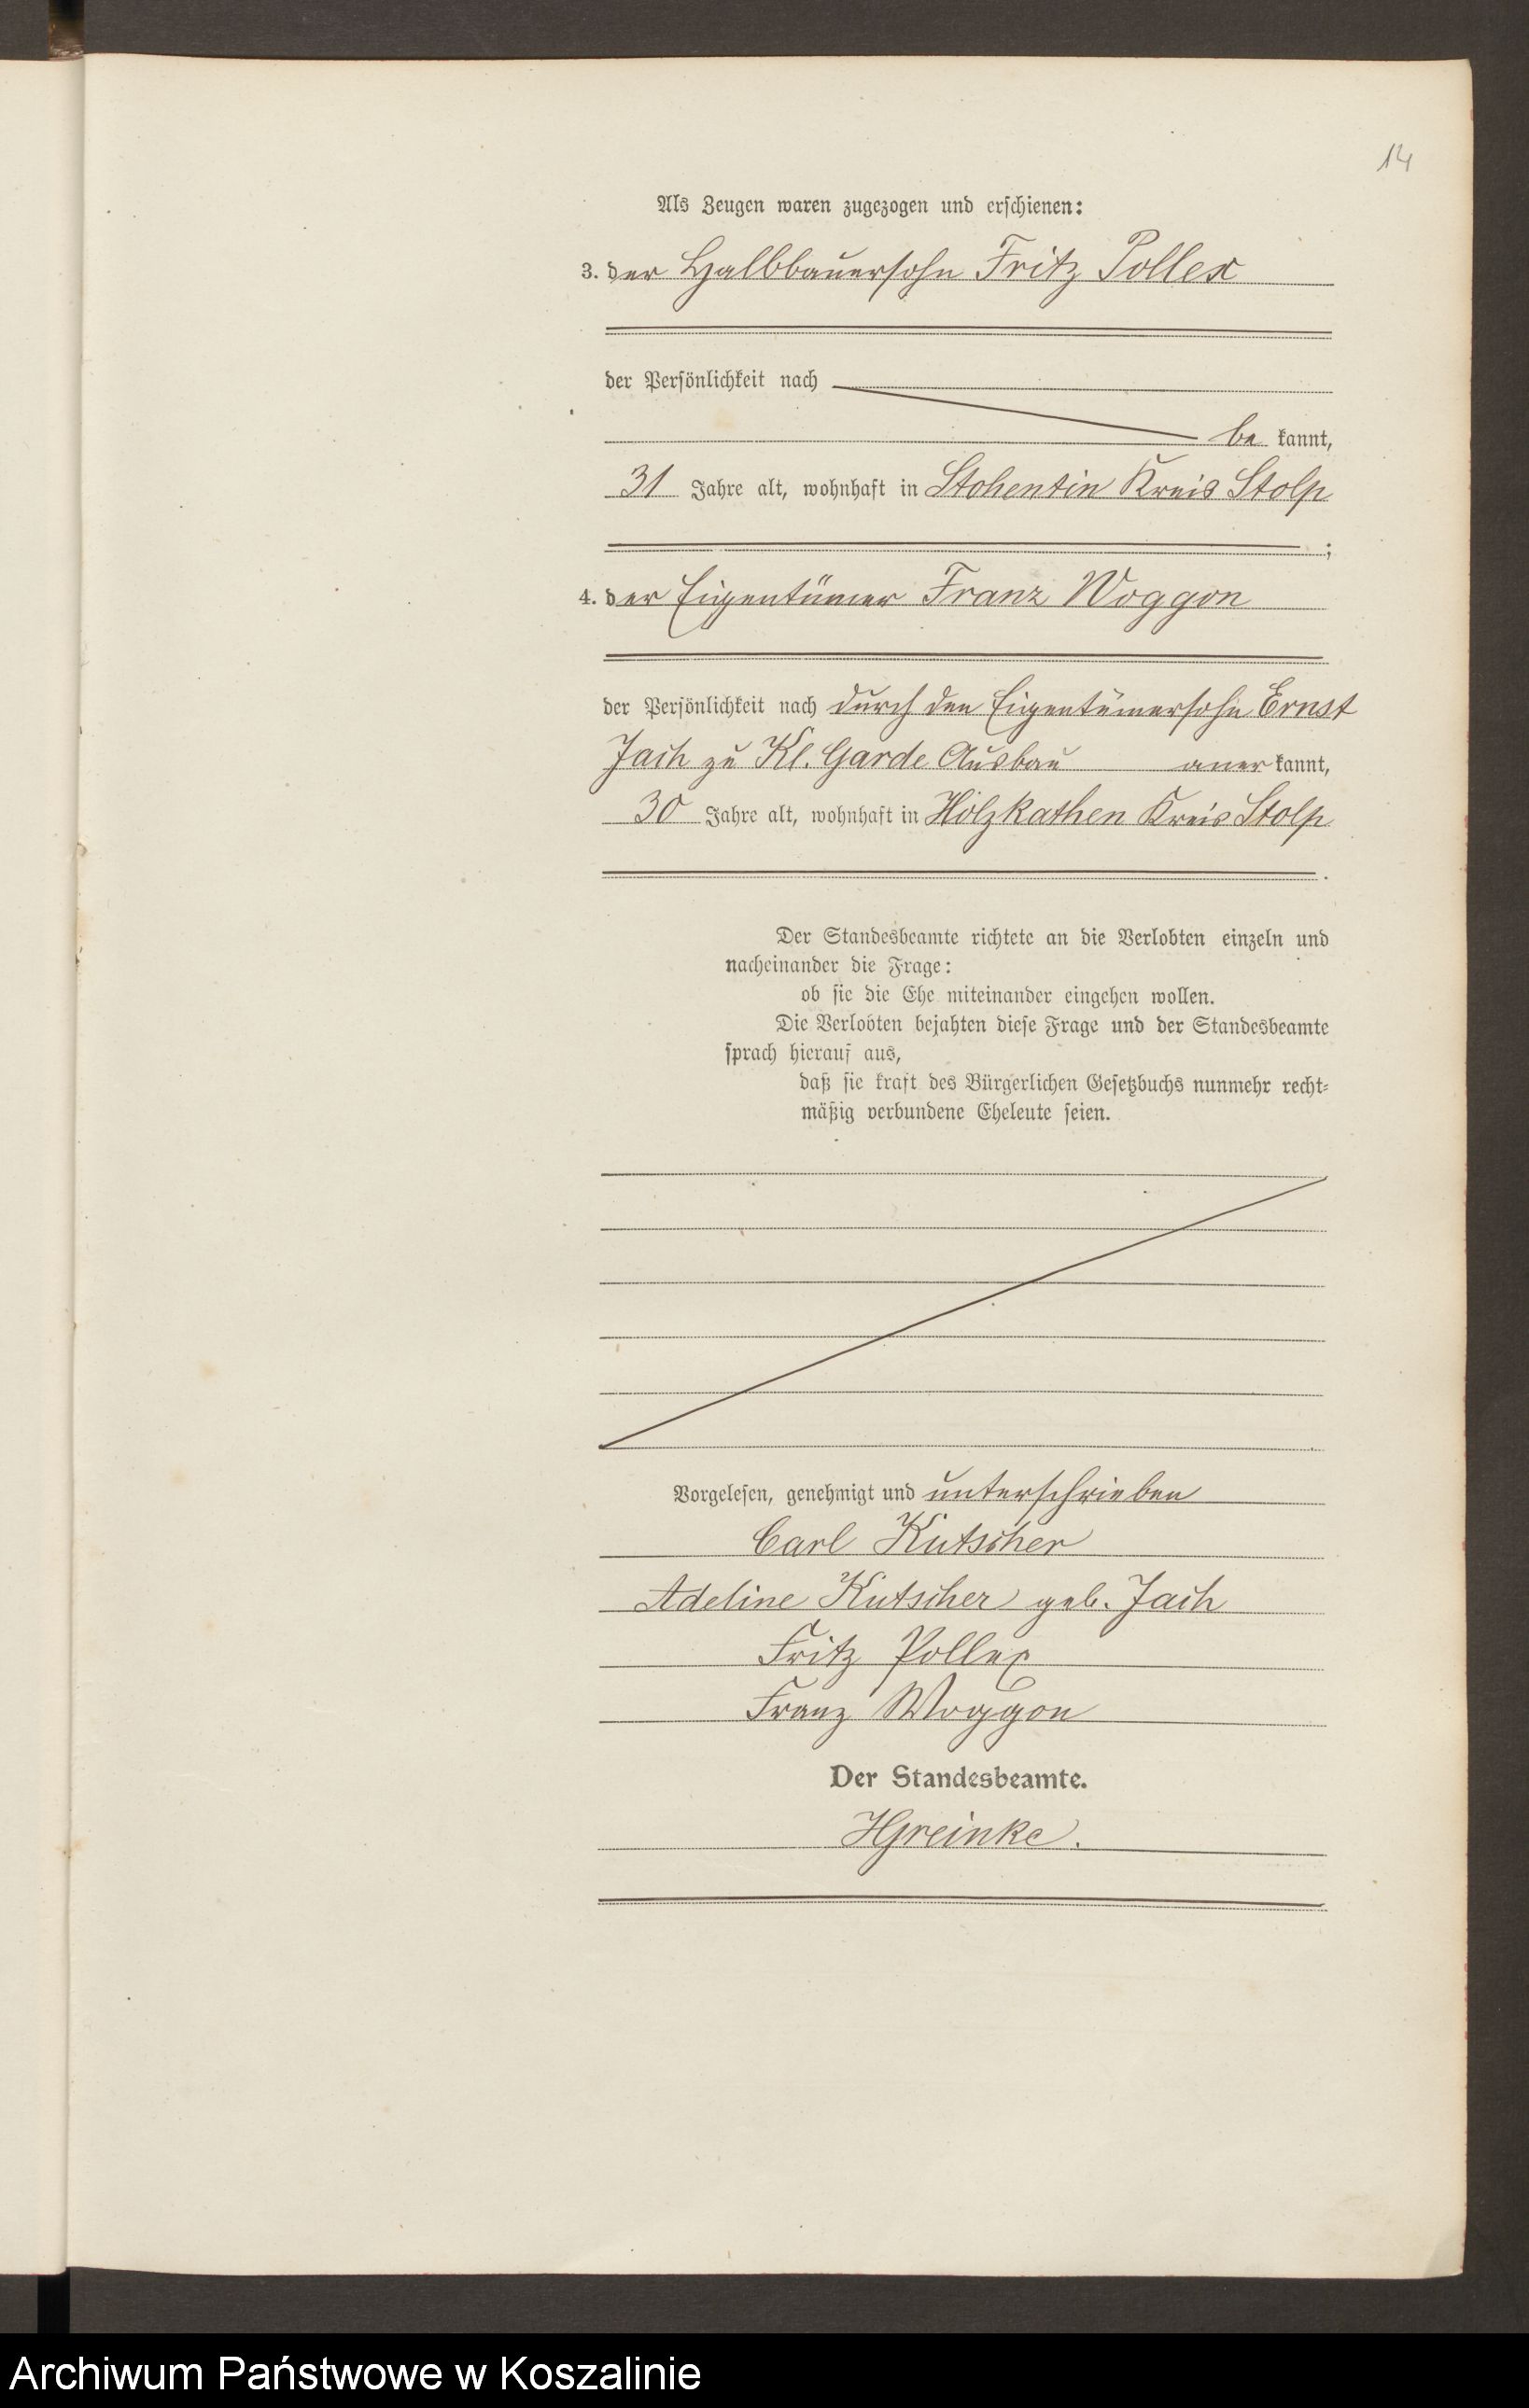 14
Als Zeugen waren zugezogen und erschienen:
3. der Halbbauersohn Fritz Pollex
der Persönlichkeit nach
be kannt,
31 Jahre alt, wohnhaft in Stohentin Kreis Stolp
;
4. der Eigentümer Franz Woggon
der Persönlichkeit nach durch den Eigentümersohn Ernst
Jach zu Kl. Garde Ausbau aner kannt,
30 Jahre alt, wohnhaft in Holzkathen Kreis Stolp
.
Der Standesbeamte richtete an die Verlobten einzeln und
nacheinander die Frage:
ob sie die Ehe miteinander eingehen wollen.
Die Verlobten bejahten diese Frage und der Standesbeamte
sprach hierauf aus,
daß sie kraft des Bürgerlichen Gesetzbuchs nunmehr recht-
mäßig verbundene Eheleute seien.
Vorgelesen, genehmigt und unterschrieben
Carl Kutscher
Adeline Kutscher geb. Jach
Fritz Pollex
Franz Woggon
Der Standesbeamte.
HGreinke.
Archiwum Państwowe w Koszalinie